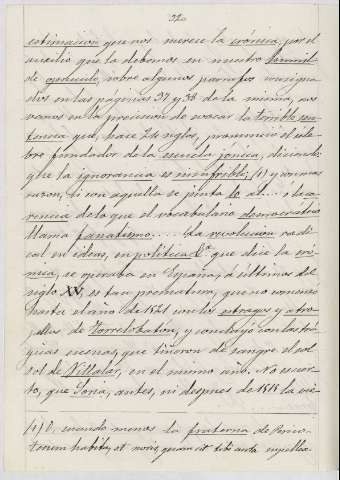 32
estimación que nos merece la crónica, por el
auxilio que la debemos en nuestro humil-
de opúsculo, sobre algunos parrafos consigna-
dos en las páginas 37 y 38 de la misma, nos
vemos en la precision de evocar la terrible sen-
tencia que, hace 24 siglos, pronunció el céle-
bre fundador de la escuela jónica, diciendo
que la ignorancia es insufrible; (1) y con mas
razon, si con aquella se junta lo al... ó la ca-
rencia de lo que el vocabulario democrático
llama fanatismo..... La revolucion radi-
cal en ideas, en política &ª que dice la cró-
nica, se operaba en España, a últimos del
siglo XV, es tan prematura, que no comenzó
hasta el año de 1521 con los estragos y atro-
pellos de Torrelobaton, y concluyó con las trá-
gicas escenas, que tiñeron de sangre el sol
sol de Villalar, en el mismo año. No es cier-
to, que Soria, antes, ni despues de 1818 la vie-
(1) O, cuando menos la fraterna de
habita, et noris, quam sit tibi curta supellex